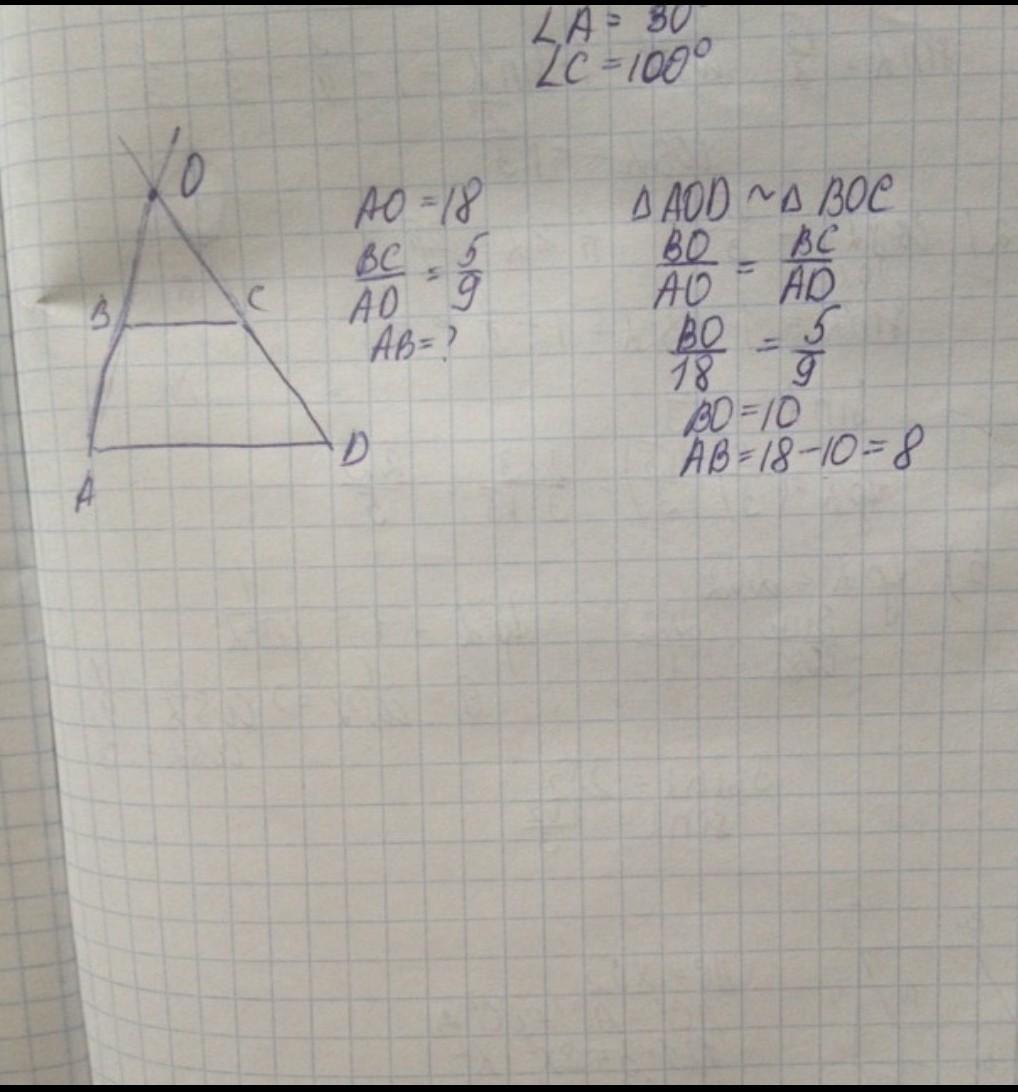 ∠A = 30°
∠C = 100°
O
B
C
A
D
AO = 18
BC/AD = 5/9
AB = ?
△AOD ~ △BOC
BO/AO = BC/AD
BO/18 = 5/9
BO = 10
AB = 18 - 10 = 8